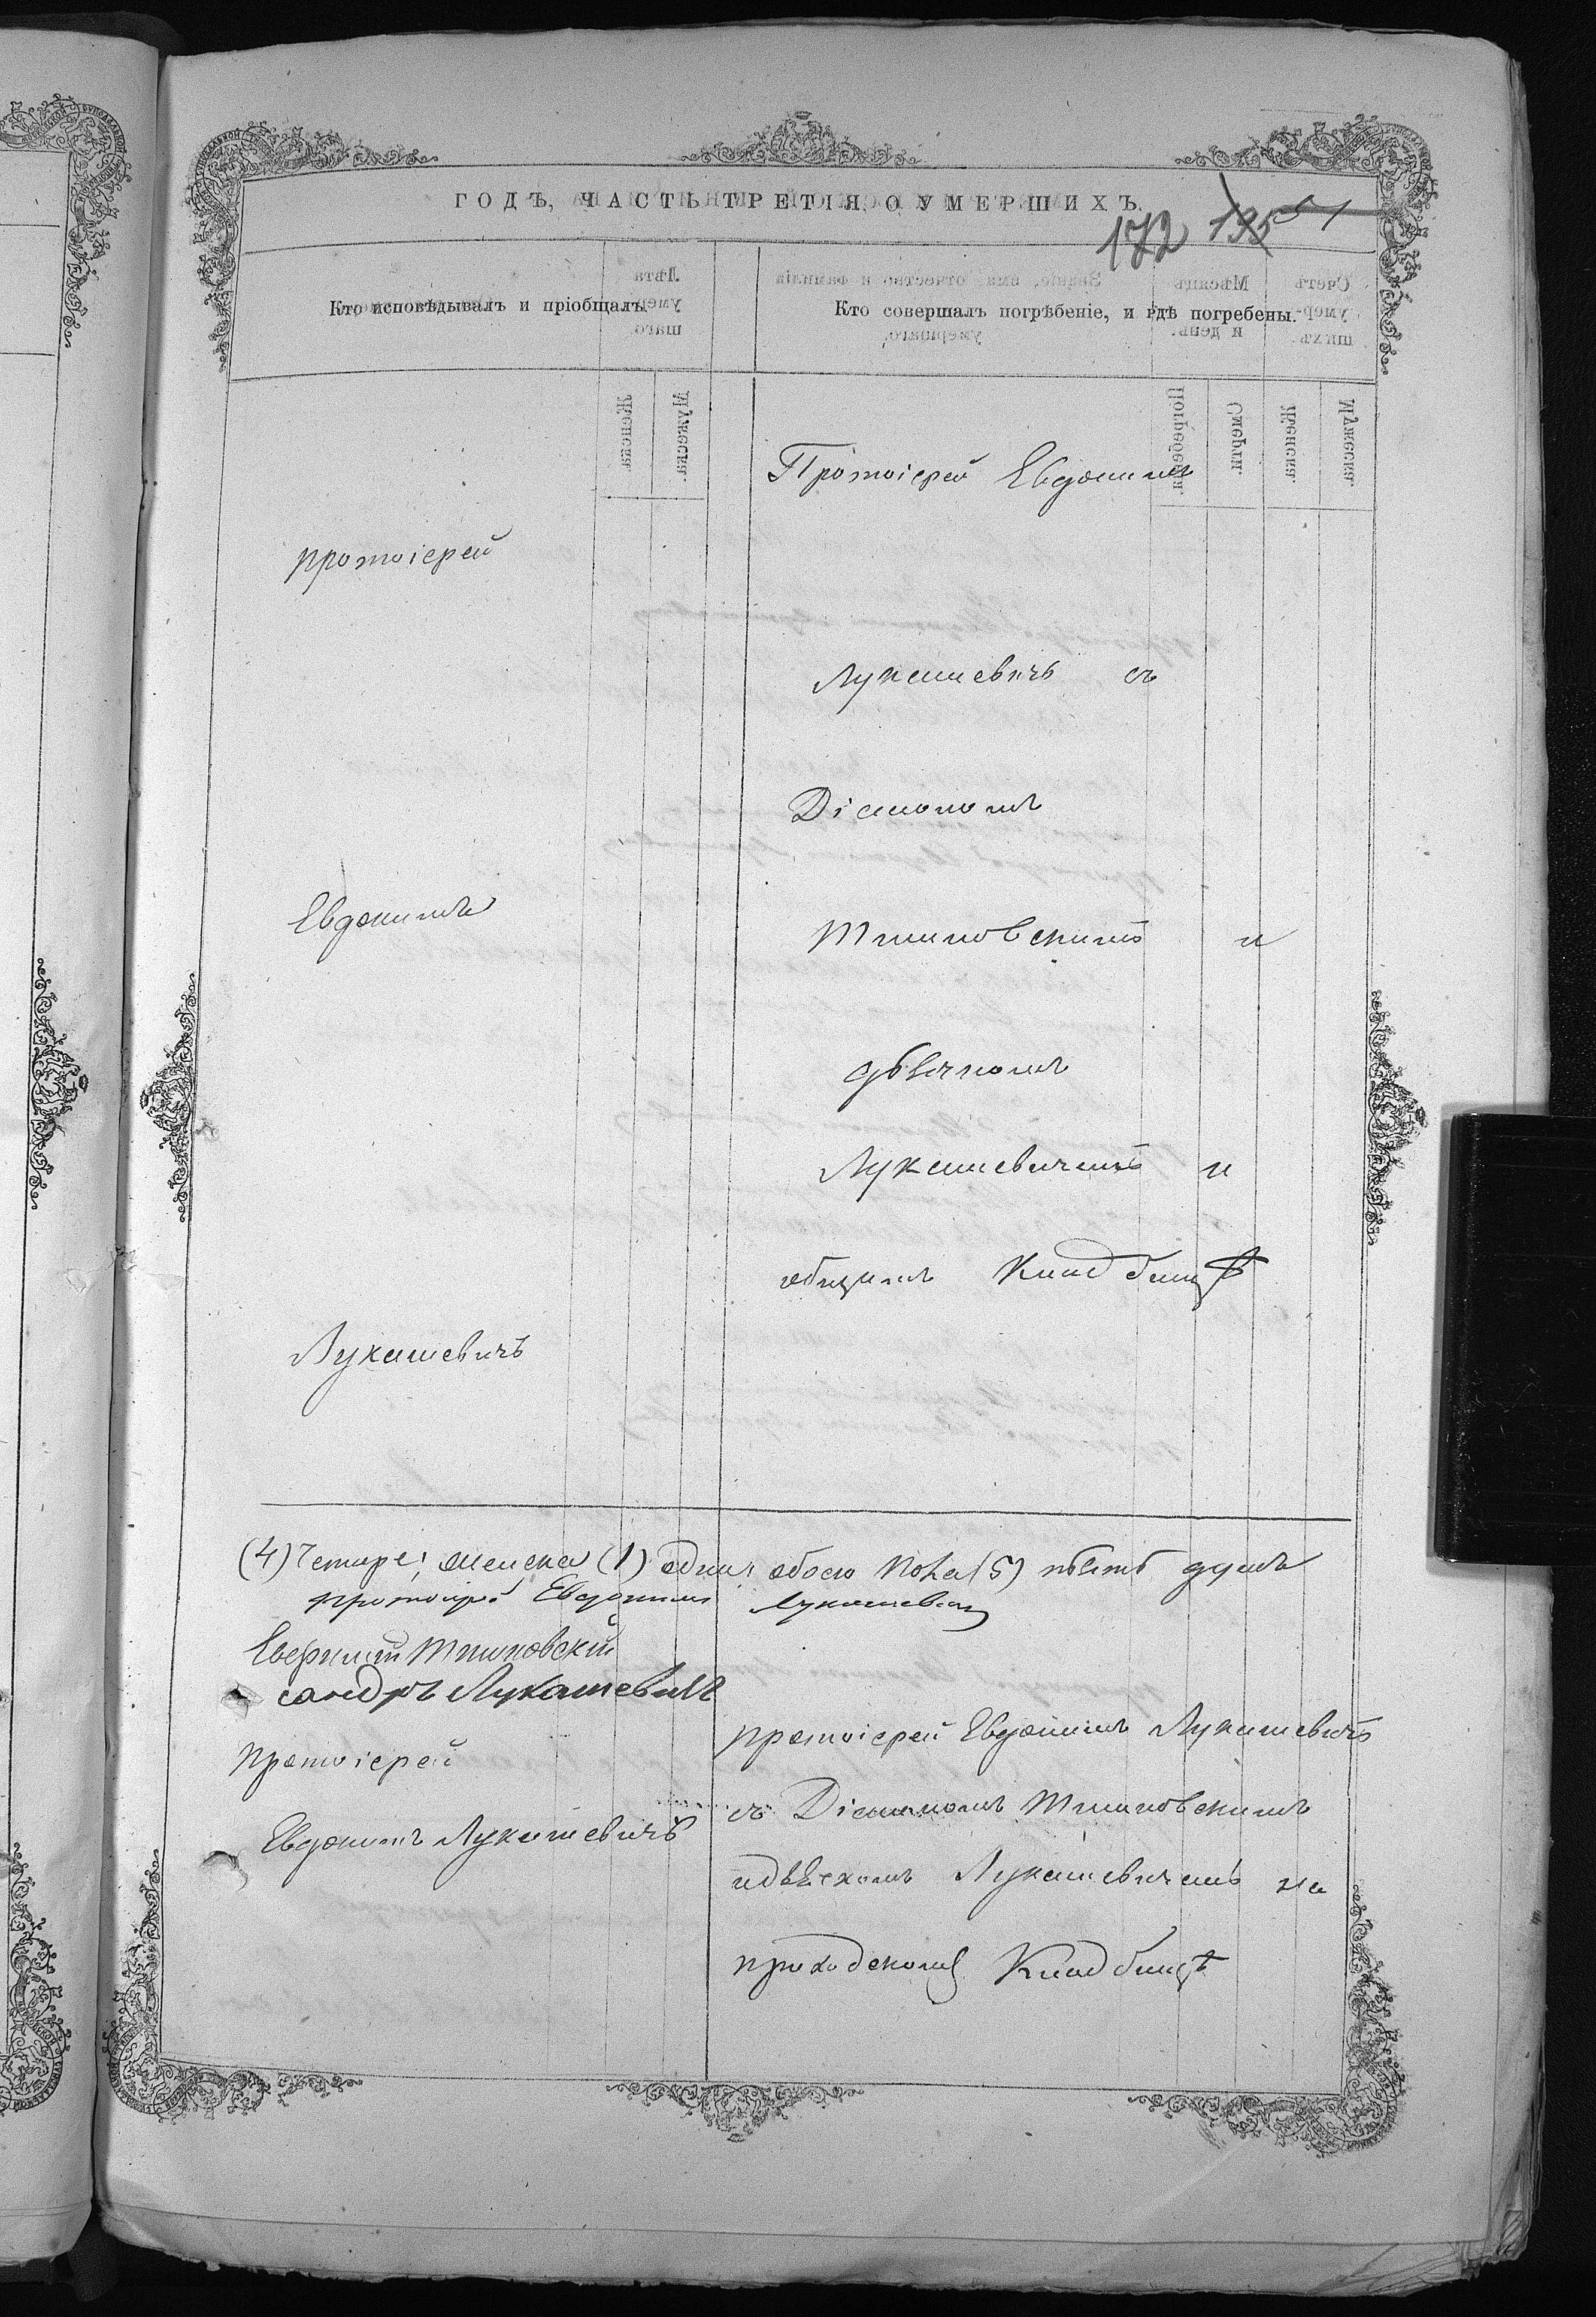 ГОДЪ, ЧАСТЬ ТРЕТІЯ, О УМЕРШИХЪ.
172 135 51
Кто исповѣдывалъ и пріобщалъ.
Кто совершалъ погрѣбеніе, и гдѣ погребены.
протоіерей
Евдокимъ
Лукашевичъ
Протоіерей Евдокимъ
Лукашевичъ съ
Діакономъ
Тшиновскимъ и
дьячкомъ
Лукашевичемъ и
общимъ Кладбищѣ
(4) Четыре; женска (1) одна; обоего пола (5) пять душъ
протоіерей Евдокимъ Лукашевичъ
Тшиновскій
сандръ Лукашевичъ
Протоіерей
Евдокимъ Лукашевичъ
протоіерей Евдокимъ Лукашевичъ
съ Діакономъ Тшиновскимъ
и дьячкомъ Лукашевичемъ на
приходскомъ Кладбищѣ